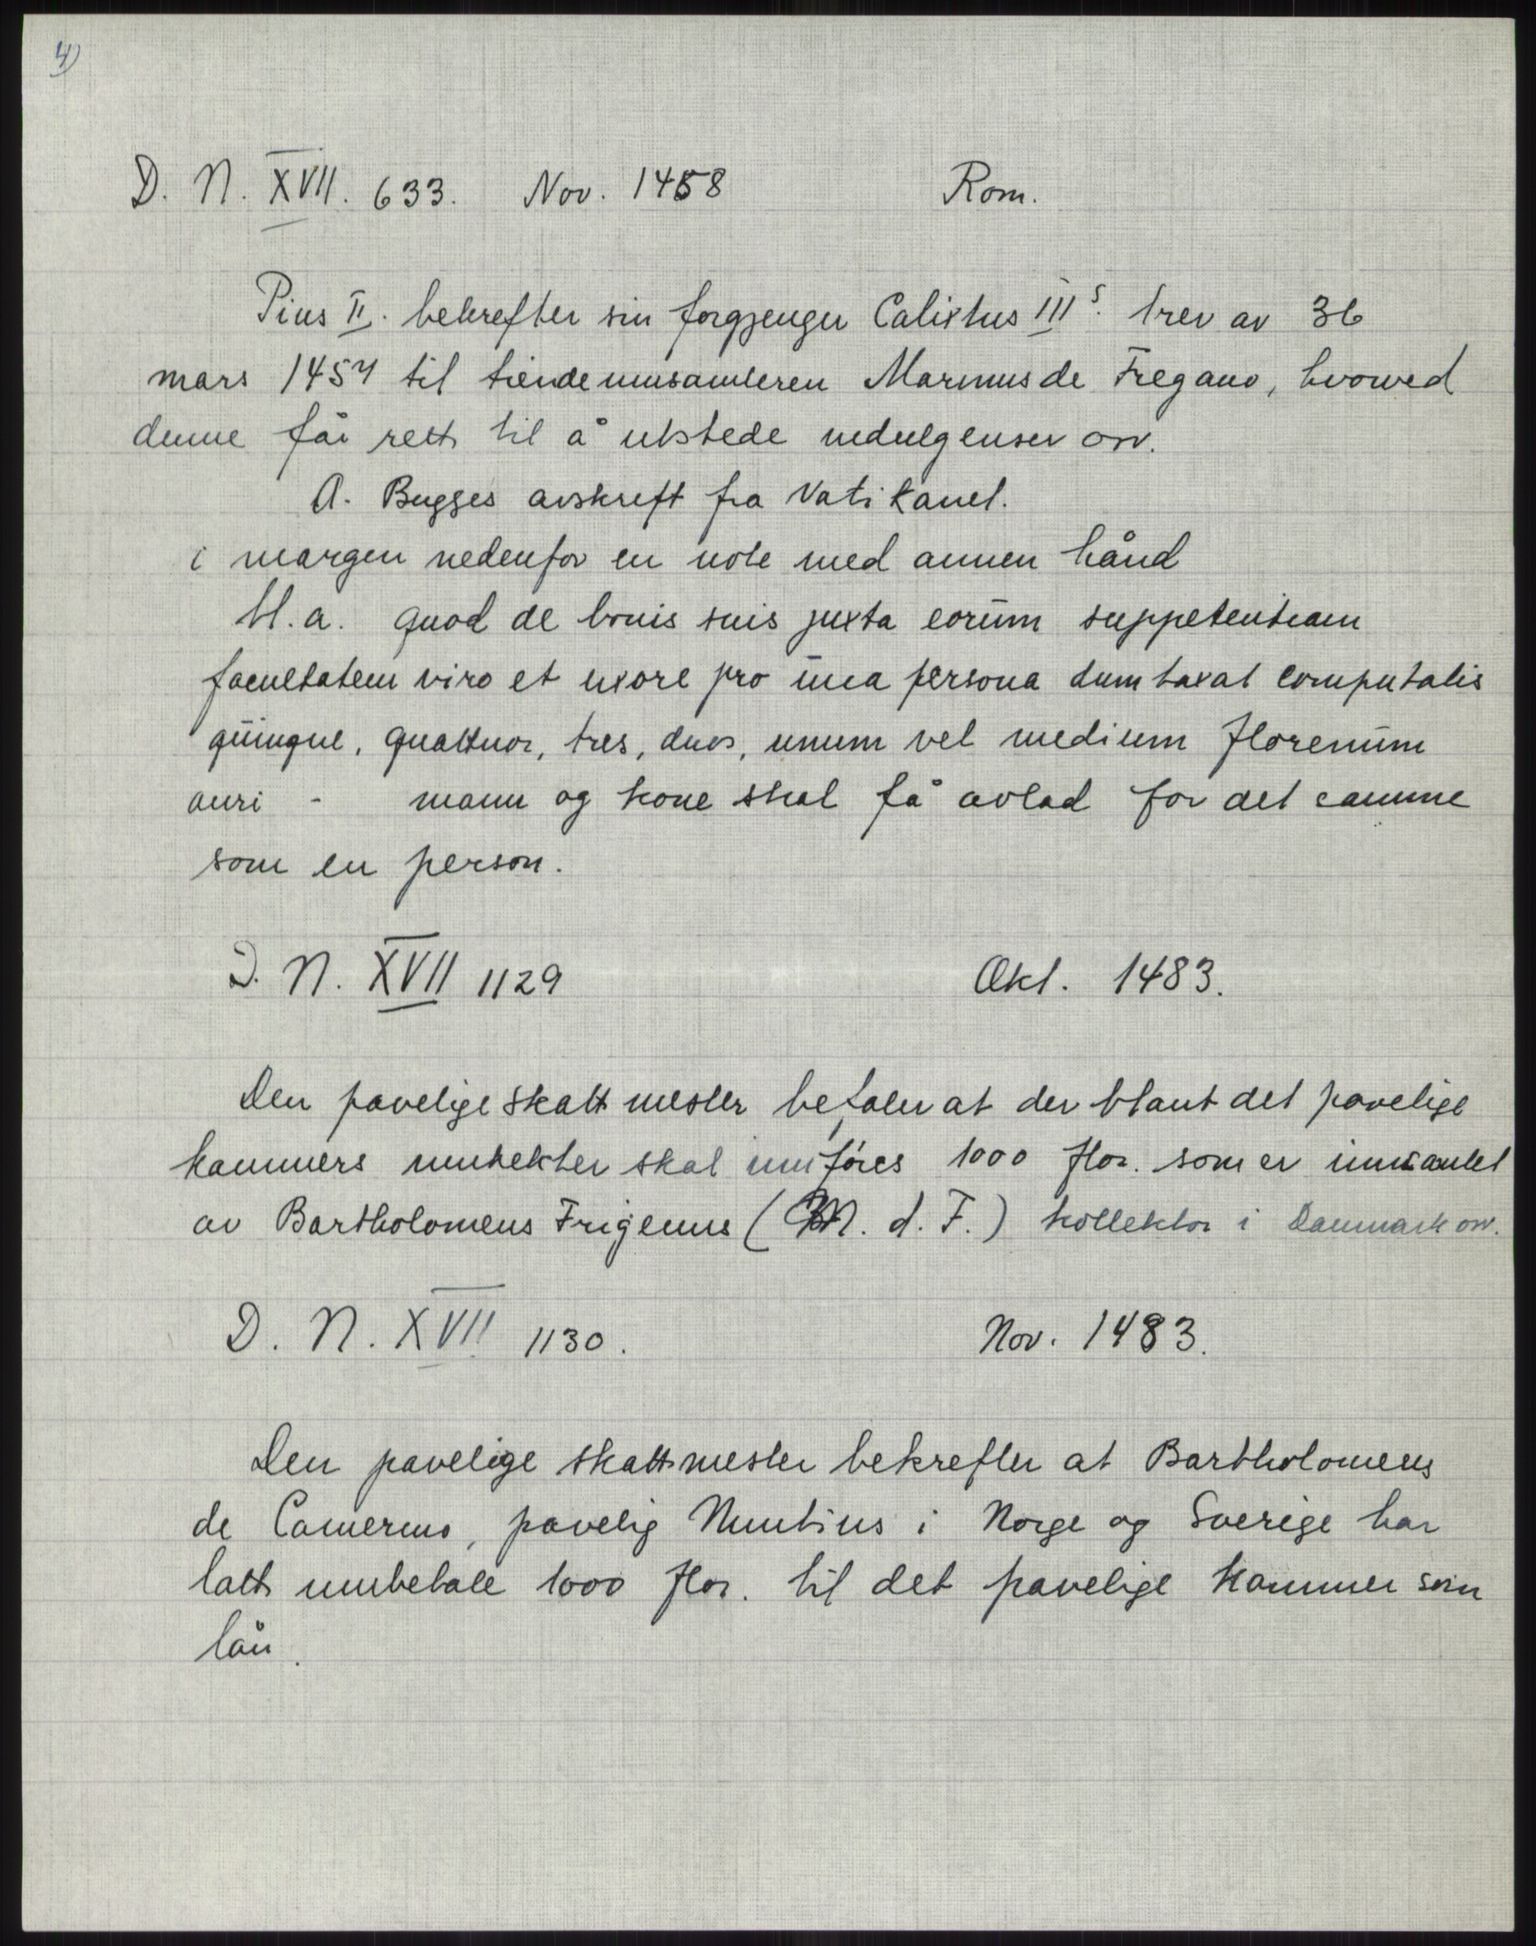 4)
D. N. XVII. 633. Nov. 1458 Rom.
Pius II. bekrefter sin forgjenger Calixtus IIIs. brev av 36
mars 1457 til tiendeinnsamleren Marinus de Fregano, hvorved
denne får rett til å utstede indulgenser osv.
A. Bugges avskrift fra Vatikanet.
i margen nedenfor en note med annen hånd
bl. a. quod de bonis suis juxta eorum suppetentiam
facultatem viro et uxore pro una persona dumtaxat computatis
quinque, quattuor, tres, duos, unum vel medium florenum
auri - mann og kone skal få avlad for det samme
som en person.
D. N. XVII 1129 Okt. 1483.
Den pavelige skattmester befaler at der blant det pavelige
kammers inntekter skal innføres 1000 flor. som er innsamlet
av Bartholomeus Frigenus (M. d. F.) kollektor i Danmark osv.
D. N. XVII 1130. Nov. 1483.
Den pavelige skattmester bekrefter at Bartholomeus
de Camerino, pavelig Nuntius i Norge og Sverige har
latt innbetale 1000 flor. til det pavelige kammer som
lån.